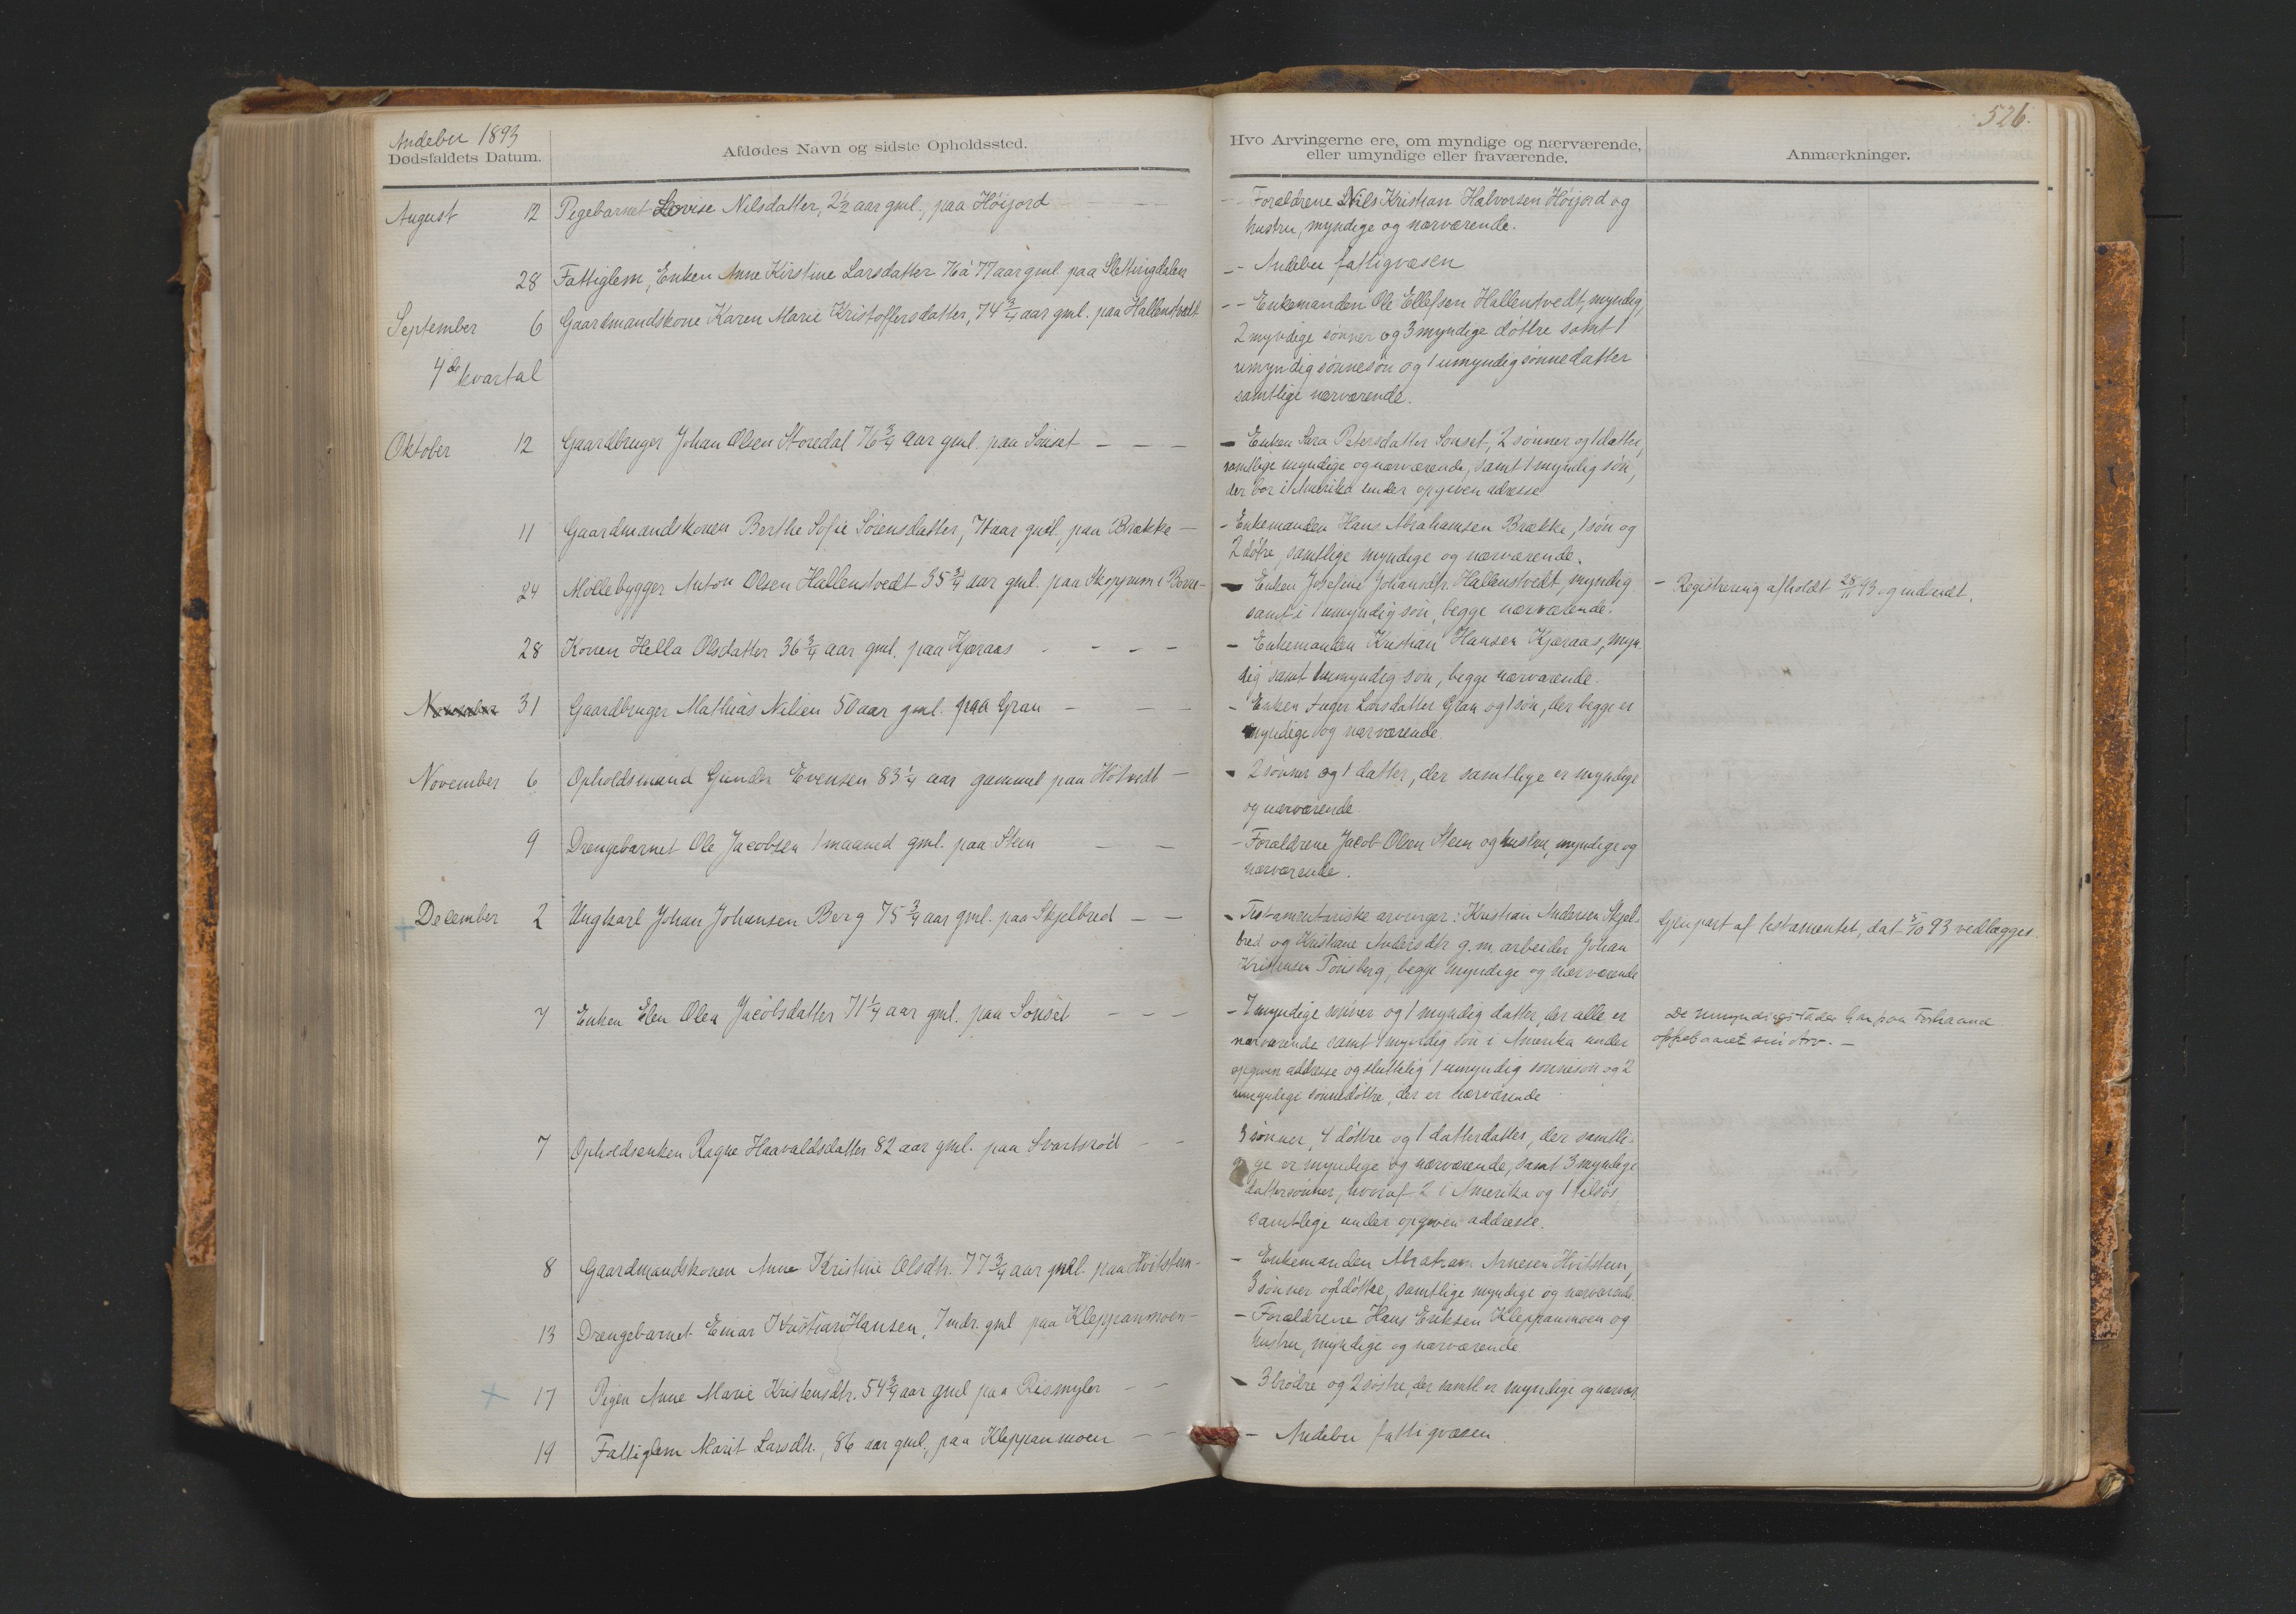 Andebu 1893
Dødsfaldets Datum.
Afdødes Navn og sidste Opholdssted.
August 12 Pigebarnet Lovise Nilsdatter, 2½ aar gml., paa Höijord — —
28 Fattiglem, Enken Anne Kirstine Larsdatter 76 à 77 aar gml. paa Slettingdalen
September 6 Gaardmandskone Karen Marie Kristoffersdatter, 74 3/4 aar gml. paa Hallenstvedt
4de kvartal
Oktober 12 Gaardbruger Johan Olsen Storedal 76 3/4 aar gml. paa Sönset — — —
11 Gaardmandskonen Berthe Sofie Sörensdatter, aar gml., paa Brække —
24 Möllebygger Anton Olsen Hallenstvedt 35 3/4 aar gml. paa Skoppum i Borre —
28 Konen Hella Olsdatter 36 3/4 aar gml. paa Kjæraas - - - -
November 31 Gaardbruger Mathias Nilsen 50 aar gml. paa Gran — — —
November 6 Opholdsmand Gunder Evensen 83 1/4 aar gammel paa Hötvedt —
9 Drengebarnet Ole Jacobsen 1 maaned gml. paa Steen — —
December 2 Ungkarl Johan Johansen Berg 75 3/4 aar gml. paa Skjelbred — —
7 Enken Elen Olea Jacobsdatter 71 1/4 aar gml. paa Sönset — — —
7 Opholdsenken Ragne Haavaldsdatter 82 aar gml. paa Svartsröd — —
8 Gaardmandskonen Anne Kristine Olsdtr. 77 3/4 aar gml. paa Hvitstein -
13 Drengebarnet Einar Kristian Hansen, 7 mdr. gml paa Kleppanmoen -
17 Pigen Anne Marie Kristensdtr. 54 3/4 aar gml paa Rismyler — —
19 Fattiglem Marit Larsdtr., 86 aar gml., paa Kleppanmoen — —
526.
Hvo Arvingerne ere, om myndige og nærværende,
eller umyndige eller fraværende.
Anmærkninger.
- Forældrene Nils Kristian Halvorsen Höijord og
hustru, myndige og nærværende.
-- Andebu fattigvæsen
-- Enkemanden Ole Ellefsen Hallenstvedt, myndig,
2 myndige sönner og 3 myndige döttre samt 1
umyndig sönnesön og 1 umyndig sönnedatter
samtlige nærværende.
- Enken Sara Petersdatter Sönset, 2 sönner og 1 datter,
samtlige myndige og nærværende, samt 1 myndig sön,
der bor i Amerika under opgiven adresse
- Enkemanden Hans Abrahamsen Brække, 1 sön og
2 dötre, samtlige myndige og nærværende.
- Enken Josefine Johansdtr. Hallenstvedt, myndig
samt i 1 umyndig sön, begge nærværende.
- Registrering afholdt 28/11 93 og indsendt.
- Enkemanden Kristian Hansen Kjæraas, myn-
dig samt 1 umyndig sön, begge nærværende.
- Enken Inger Larsdatter Gran og 1 sön, der begge er
myndige og nærværende
- 2 sönner og 1 datter, der samtlige er myndige
og nærværende
- Forældrene Jacob Olsen Steen og hustru, myndige og
nærværende.
- Testamentariske arvinger: Kristian Andersen Skjel-
bred og Kristiane Andersdtr g. m. arbeider Johan
Kristensen Tönsberg, begge myndige og nærværende
Gjenpart af testamentet, dat 5/10 93 vedlægges
- 7 myndige sönner og 1 myndig datter, der alle er
nærværende samt 1 myndig sön i Amerika under
opgiven addresse og sluttelig 1 umyndig sönnesön og 2
umyndige sönnedöttre, der er nærværende
De umyndiges Fader har paa Forhaand
oppebaaret sin Arv. —
3 sönner, 4 döttre og 1 datterdatter, der samtli-
ge er myndige og nærværende, samt 3 myndige
dattersönner, hvoraf 2 i Amerika og 1 tilsös
samtlige under opgiven addresse.
- Enkemanden Abraham Arnesen Hvitstein,
3 sönner og döttre, samtlige myndige og nærværende
- Forældrene Hans Eriksen Kleppanmoen og
hustru, myndige og nærværende
- 3 brödre og 2 söstre, der samtl er myndige og nærvær.
- Andebu fattigvæsen.